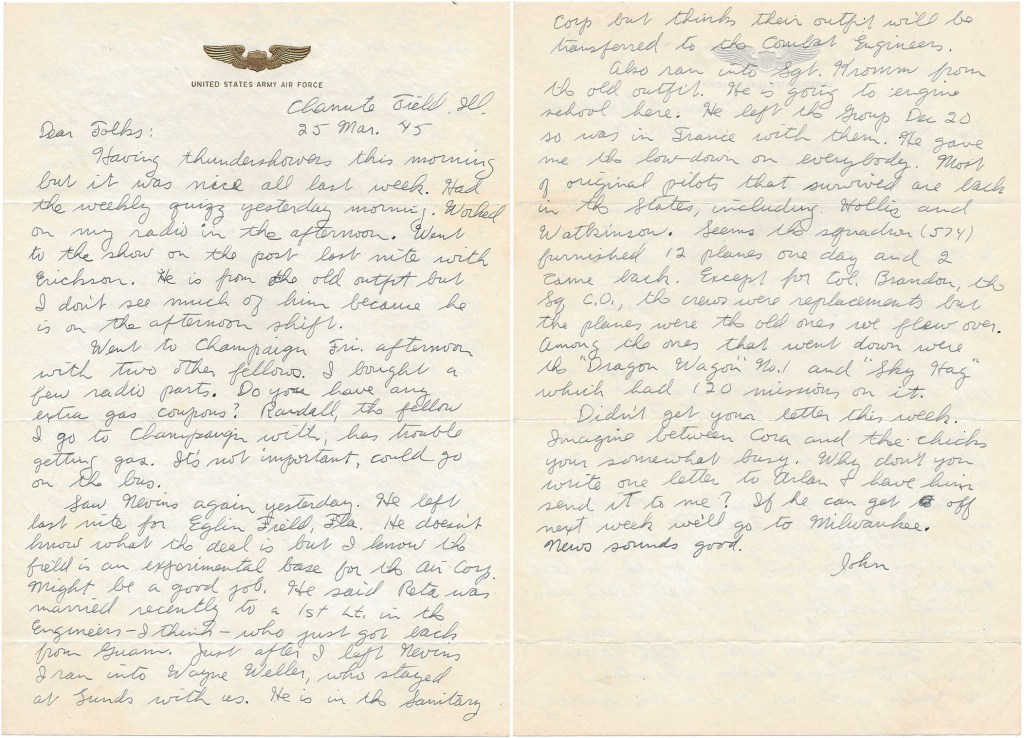 UNITED STATES ARMY AIR FORCE
Chanute Field, Ill.
25 Mar. 45
Dear Folks:
Having thundershowers this morning
but it was nice all last week. Had
the weekly quizz yesterday morning. Worked
on my radio in the afternoon. Went
to the show on the post last nite with
Erickson. He is from the old outfit but
I don't see much of him because he
is on the afternoon shift.
Went to Champaign Fri. afternoon
with two other fellows. I bought a
few radio parts. Do you have any
extra gas coupons? Randall, the fellow
I go to Champaign with, has trouble
getting gas. It's not important, could go
on the bus.
Saw Nevins again yesterday. He left
last nite for Eglin Field, Fla. He doesn't
know what the deal is but I know the
field is an experimental base for the Air Corp.
Might be a good job. He said Reta was
married recently to a 1st Lt. in the
Engineers - I think - who just got back
from Guam. Just after I left Nevins
I ran into Wayne Weller, who stayed
at Gunds with us. He is in the Sanitary
Corp but thinks their outfit will be
transferred to the Combat Engineers.
Also ran into Sgt. Kromm from
the old outfit. He is going to engine
school here. He left the Group Dec 20
so was in France with them. He gave
me the low-down on everybody. Most
of original pilots that survived are back
in the States, including Hollis and
Watkinson. Seems the squadron (574)
furnished 12 planes one day and 2
came back. Except for Col. Brandon, the
Sq C.O., the crews were replacements but
the planes were the old ones we flew over.
Among the ones that went down were
the "Dragon Wagon" No. 1 and "Sky Hag"
which had 120 missions on it.
Didn't get your letter this week.
Imagine between Cora and the chicks
your somewhat busy. Why don't you
write one letter to Arlan & have him
send it to me? If he can get off
next week we'll go to Milwaukee.
News sounds good.
John